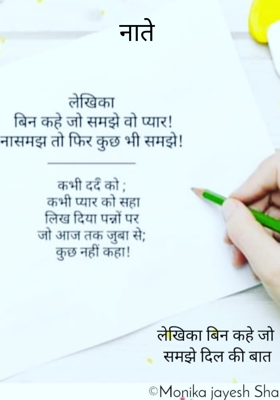 नाते
लेखिका
बिन कहे जो समझे वो प्यार!
नासमझ तो फिर कुछ भी समझे!
कभी दर्द को ;
कभी प्यार को सहा
लिख दिया पन्नों पर
जो आज तक जुबा से;
कुछ नहीं कहा!
लेखिका बिन कहे जो
समझे दिल की बात
©Monika jayesh Sha